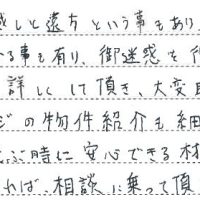 感しと遠方という事もあり、
る事も有り、御迷惑を
詳しくして頂き、大変
ジの物件紹介も細
ぶ時に安心できる材
れば、相談に乗って頂